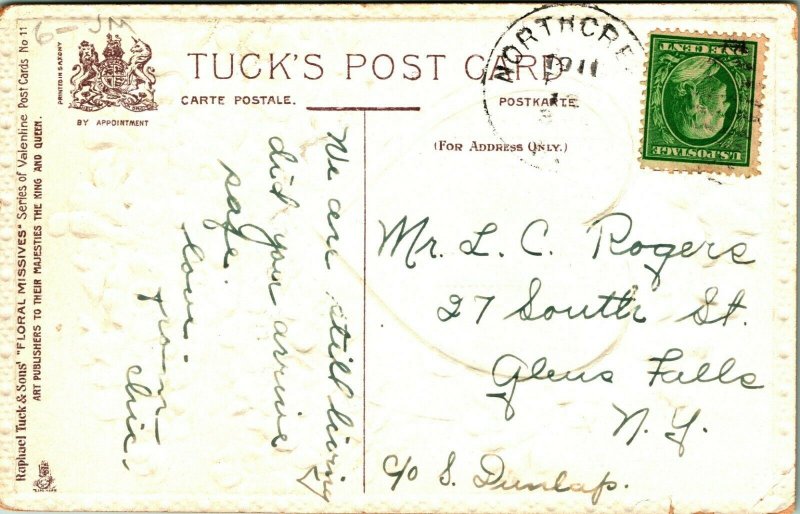 6- JM
Raphael Tuck & Sons' "FLORAL MISSIVES" Series of Valentine Post Cards No 11
ART PUBLISHERS TO THEIR MAJESTIES THE KING AND QUEEN.
PRINTED IN SAXONY
BY APPOINTMENT
TUCK'S POST CARD
CARTE POSTALE.
POSTKARTE.
(FOR ADDRESS ONLY.)
NORTHCRE
U.S. POSTAGE
We are still living
did you arrive
safe.
love.
from
Chic.
Mr. L. C. Rogers
27 South St.
Glens Falls
N.Y.
c/o S. Dunlap.